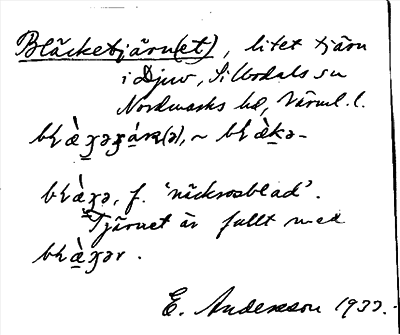 Bläcketjärn(et), litet tjärn
i Djuv, Sillbodals sn
Nordmarks hd, Värml. l.
blæ̀gəʒá̱ɳ(ə), ~ blæ̀kə-
blæ̀gə, f. 'näckrosblad'.
Tjärnet är fullt med
blæ̀gər.
E. Andersson 1933.